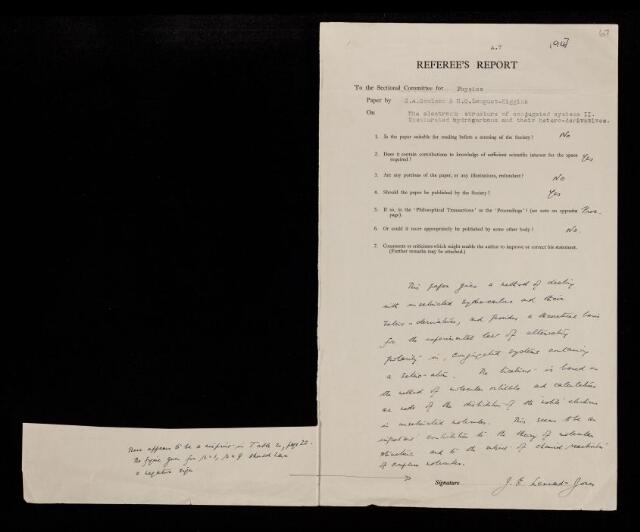 67
A.7
1947
REFEREE'S REPORT
To the Sectional Committee for Physics
Paper by C.A.Coulson & H.C.Longuet-Higgins
On The electronic structure of conjugated systems II.
Unsaturated hydrocarbons and their hetero-derivatives.
1. Is the paper suitable for reading before a meeting of the Society? No
2. Does it contain contributions to knowledge of sufficient scientific interest for the space
required? Yes
3. Are any portions of the paper, or any illustrations, redundant? No
4. Should the paper be published by the Society? Yes
5. If so, in the 'Philosophical Transactions' or the 'Proceedings'? (see note on opposite Proc.
page).
6. Or could it more appropriately be published by some other body? No.
7. Comments or criticisms which might enable the author to improve or correct his statement.
(Further remarks may be attached.)
This paper gives a method of dealing
with unsaturated hydrocarbons and their
hetero-derivatives, and provides a theoretical basis
for the experimental law of alternating
polarity in conjugated systems containing
a hetero-atom. The treatment is based on
the method of molecular orbitals and calculations
are made of the distribution of the mobile electrons
in unsaturated molecules. This seems to be an
important contribution to the theory of molecular
structure and to the theory of chemical reactivities
of complex molecules.
There appears to be a misprint in Table 2, page 22.
The figure given for should have
a negative sign
Signature J. E. Lennard-Jones